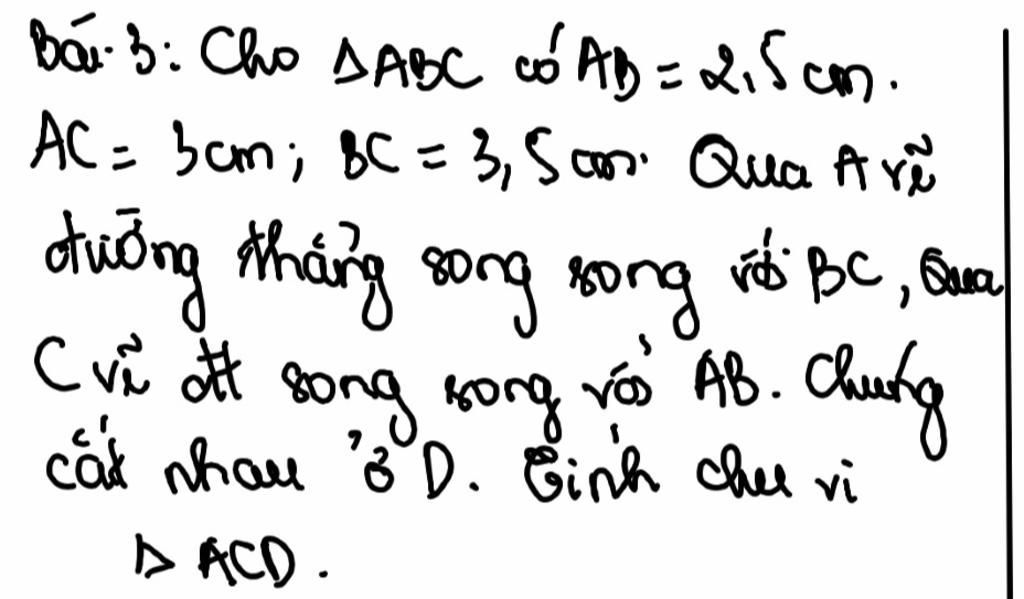 Bài 3: Cho ΔABC có AB = 2,5 cm.
AC = 3cm; BC = 3,5 cm. Qua A vẽ
đường thẳng song song với BC, Qua
C vẽ đt song song với AB. Chúng
cắt nhau ở D. Tính chu vi
Δ ACD.